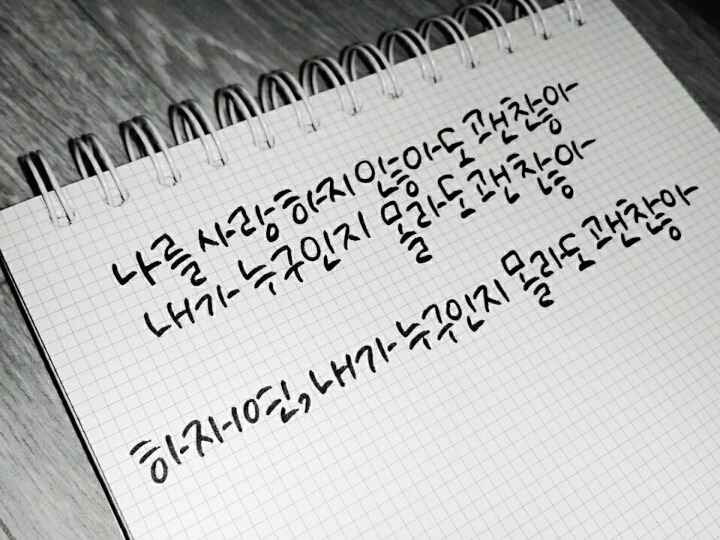 나를 사랑하지 않아도 괜찮아
내가 누구인지 몰라도 괜찮아
하제연, 내가 누구인지 몰라도 괜찮아